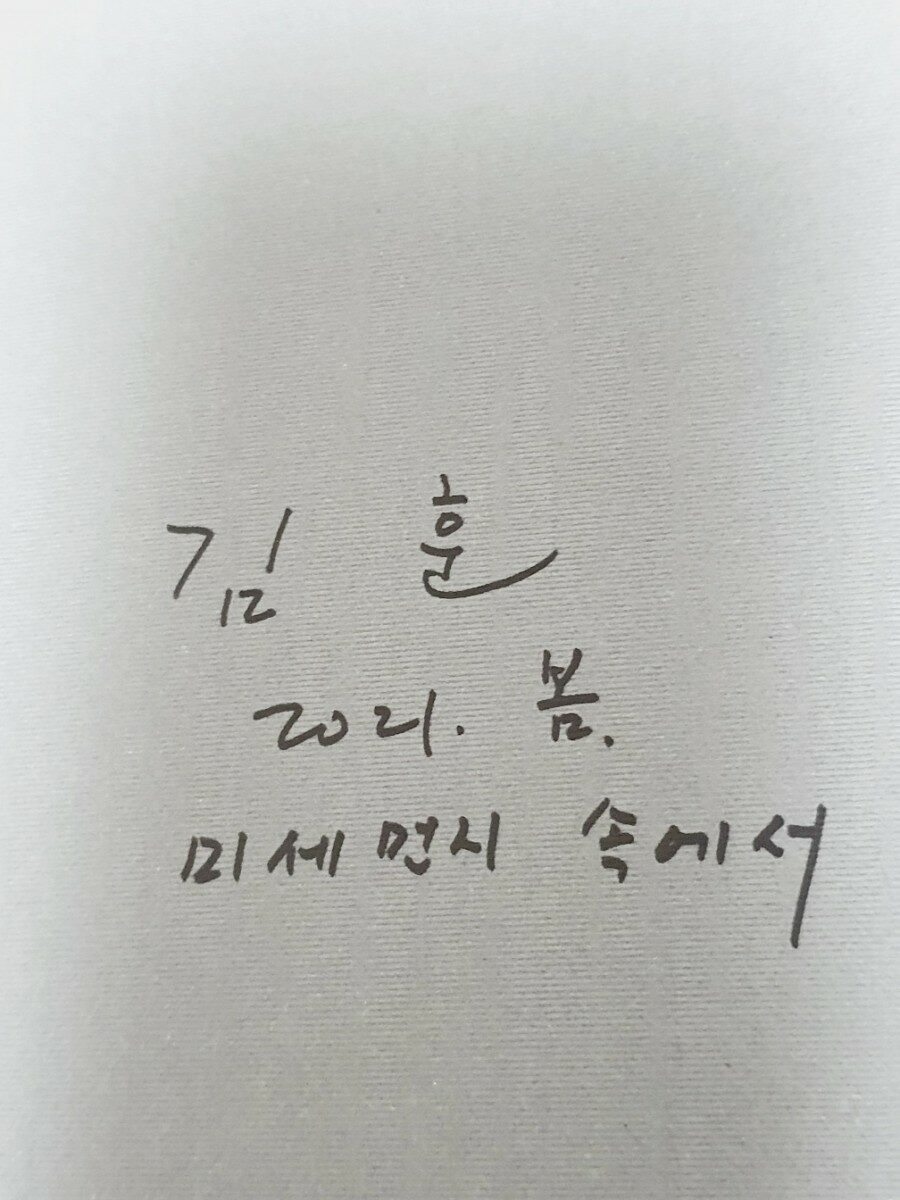 김 훈
2021. 봄.
미세먼지 속에서